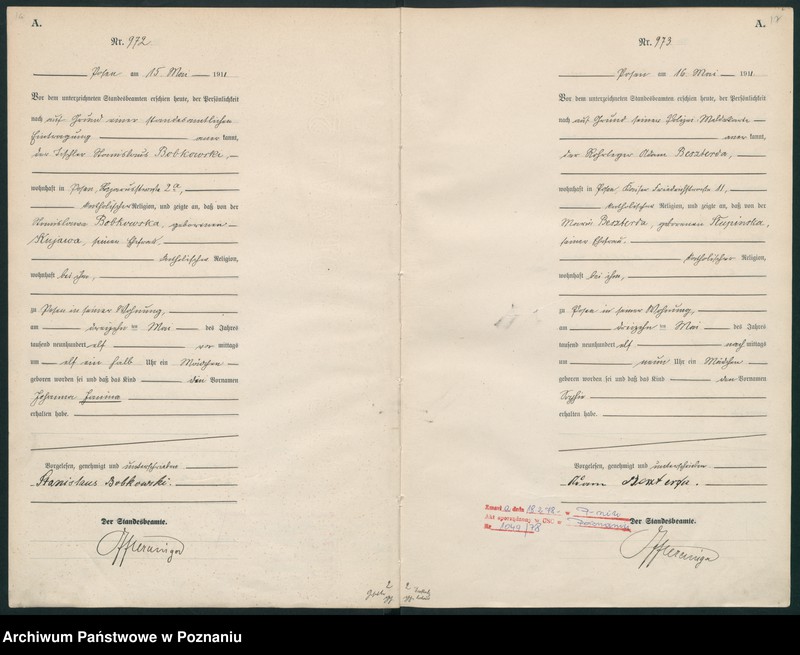 A.
Nr. 972
Posen am 15. Mai 1911
Vor dem unterzeichneten Standesbeamten erschien heute, der Persönlichkeit
nach auf Grund einer standesamtlichen
Eintragung anerkannt,
der Tischler Stanislaus Bobkowski,
wohnhaft in Posen, 2a,
katholischer Religion, und zeigte an, daß von der
Stanislawa Bobkowska, geborenen
Kujawa, seiner Ehefrau,
katholischer Religion,
wohnhaft bei ihm,
zu Posen in seiner Wohnung,
am dreizehnten Mai des Jahres
tausend neunhundert elf vormittags
um elf ein halb Uhr ein Mädchen
geboren worden sei und daß das Kind den Vornamen
Johanna Janina
erhalten habe.
Vorgelesen, genehmigt und unterschrieben
Stanislaus Bobkowski.
Der Standesbeamte.
A.
Nr. 973
Posen am 16. Mai 1911
Vor dem unterzeichneten Standesbeamten erschien heute, der Persönlichkeit
nach auf Grund seiner Polizei-Meldekarte
anerkannt,
der Rohrleger Adam Beszterda,
wohnhaft in Posen, Kaiser Friedrichstraße 11,
katholischer Religion, und zeigte an, daß von der
Maria Beszterda, geborenen Kupinska,
seiner Ehefrau.
katholischer Religion,
wohnhaft bei ihm,
zu Posen in seiner Wohnung,
am dreizehnten Mai des Jahres
tausend neunhundert elf nachmittags
um neun Uhr ein Mädchen
geboren worden sei und daß das Kind den Vornamen
Sophie
erhalten habe.
Vorgelesen, genehmigt und unterschrieben
Adam Beszterda.
Der Standesbeamte.
Zmarł a dnia 18.2.78 w
Akt sporządzony w USC w Poznaniu
Nr 1049/78
Archiwum Państwowe w Poznaniu